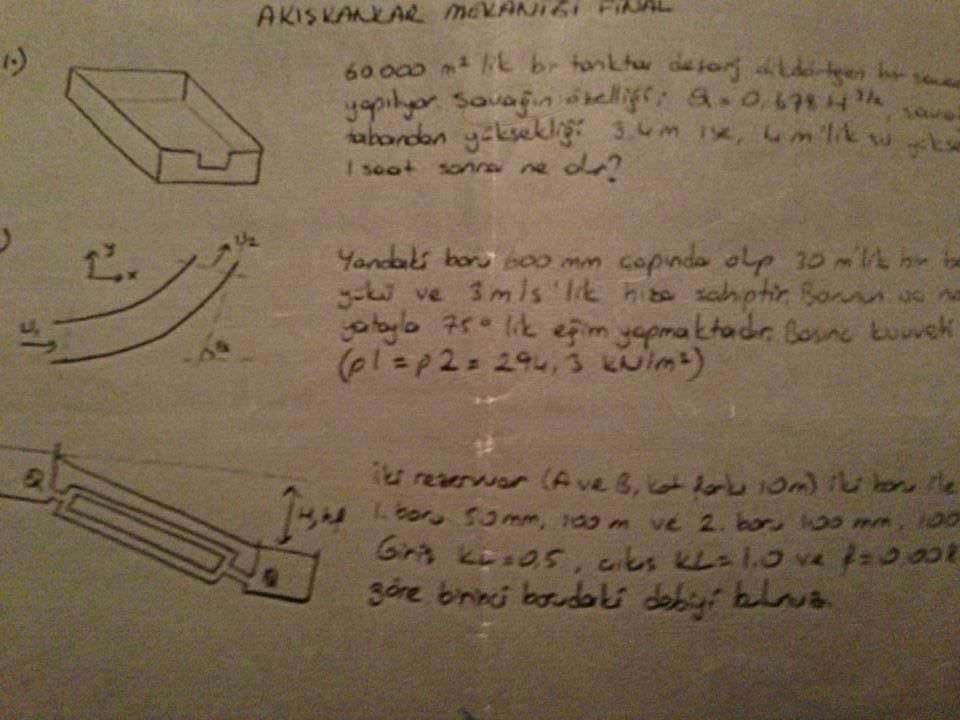 AKIŞKANKAR MEKANİĞİ FİNAL
1.)
60.000 m² lik bir tanktan deşarj dikdörtgen bir
yapılıyor. Savağın özelliği; Q = 0.678 H^3/2,
tabandan yüksekliği 3.4m ise, 4 m'lik su
1 saat sonra ne olur?
)
y
x
U1
U2
Yandaki boru 600 mm çapında olup 30 m'lik bir
yükü ve 3 m/s 'lik hıza sahiptir. Borunun uc
yatayla 75° lik eğim yapmaktadır. Basınç kuvveti
(p1 = p2 = 294,3 kN/m²)
iki rezervuar (A ve B, kot farkı 10m) iki boru ile
1. boru 50mm, 100m ve 2. boru 100 mm, 100
Giriş KL=0.5, çıkış KL=1.0 ve f=0.008
göre birinci borudaki debiyi bulunuz.
H, hf